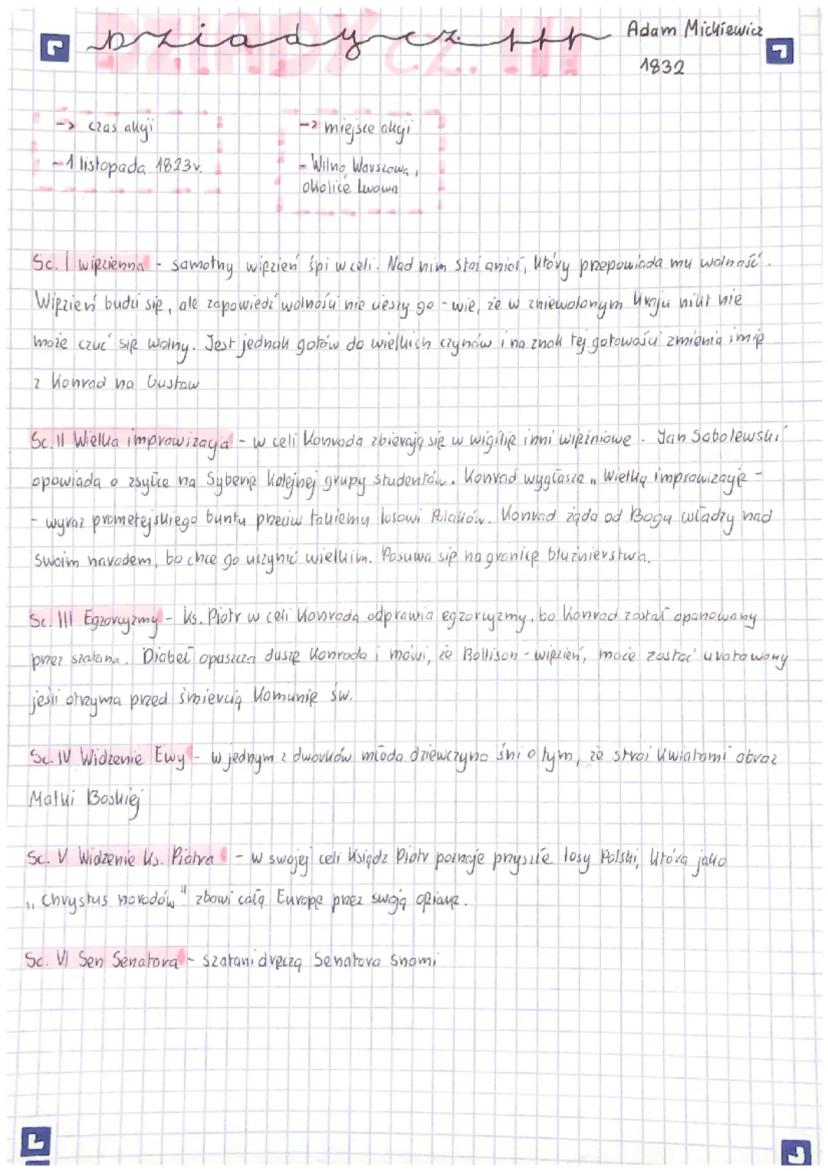 Dziady cz. III
Adam Mickiewicz
1832
-> czas akcji
- 1 listopada 1823r.
-> miejsce akcji
- Wilno, Warszawa,
okolice Lwowa
Sc. I więzienna - samotny więzień śpi w celi. Nad nim stoi anioł, który przepowiada mu wolność.
Więzień budzi się, ale zapowiedź wolności nie cieszy go - wie, że w zniewolonym kraju nikt nie
może czuć się wolny. Jest jednak gotów do wielkich czynów i na znak tej gotowości zmienia imię
z Konrad na Gustaw
Sc. II Wielka improwizacja - w celi Konrada zbierają się w wigilię inni więźniowe. Jan Sobolewski
opowiada o zsyłce na Syberię kolejnej grupy studentów. Konrad wygłasza „Wielką improwizację -
- wyraz prometejskiego buntu przeciw takiemu losowi Polaków. Konrad żąda od Boga władzy nad
swoim narodem, bo chce go uczynić wielkim. Posuwa się na granicę bluźnierstwa.
Sc. III Egzorcyzmy - ks. Piotr w celi Konrada odprawia egzorcyzmy, bo Konrad został opanowany
przez szatana. Diabeł opuszcza duszę Konrada i mówi, że Bollison - więzień, może zostać uratowany
jeśli otrzyma przed śmiercią Komunię św.
Sc. IV Widzenie Ewy - w jednym z dworków młoda dziewczyna śni o tym, że stroi kwiatami obraz
Matki Boskiej
Sc. V Widzenie ks. Piotra - w swojej celi Ksiądz Piotr poznaje przyszłe losy Polski, która jako
„Chrystus narodów" zbawi całą Europę przez swoją
Sc. VI Sen Senatora - szatani dręczą Senatora snami